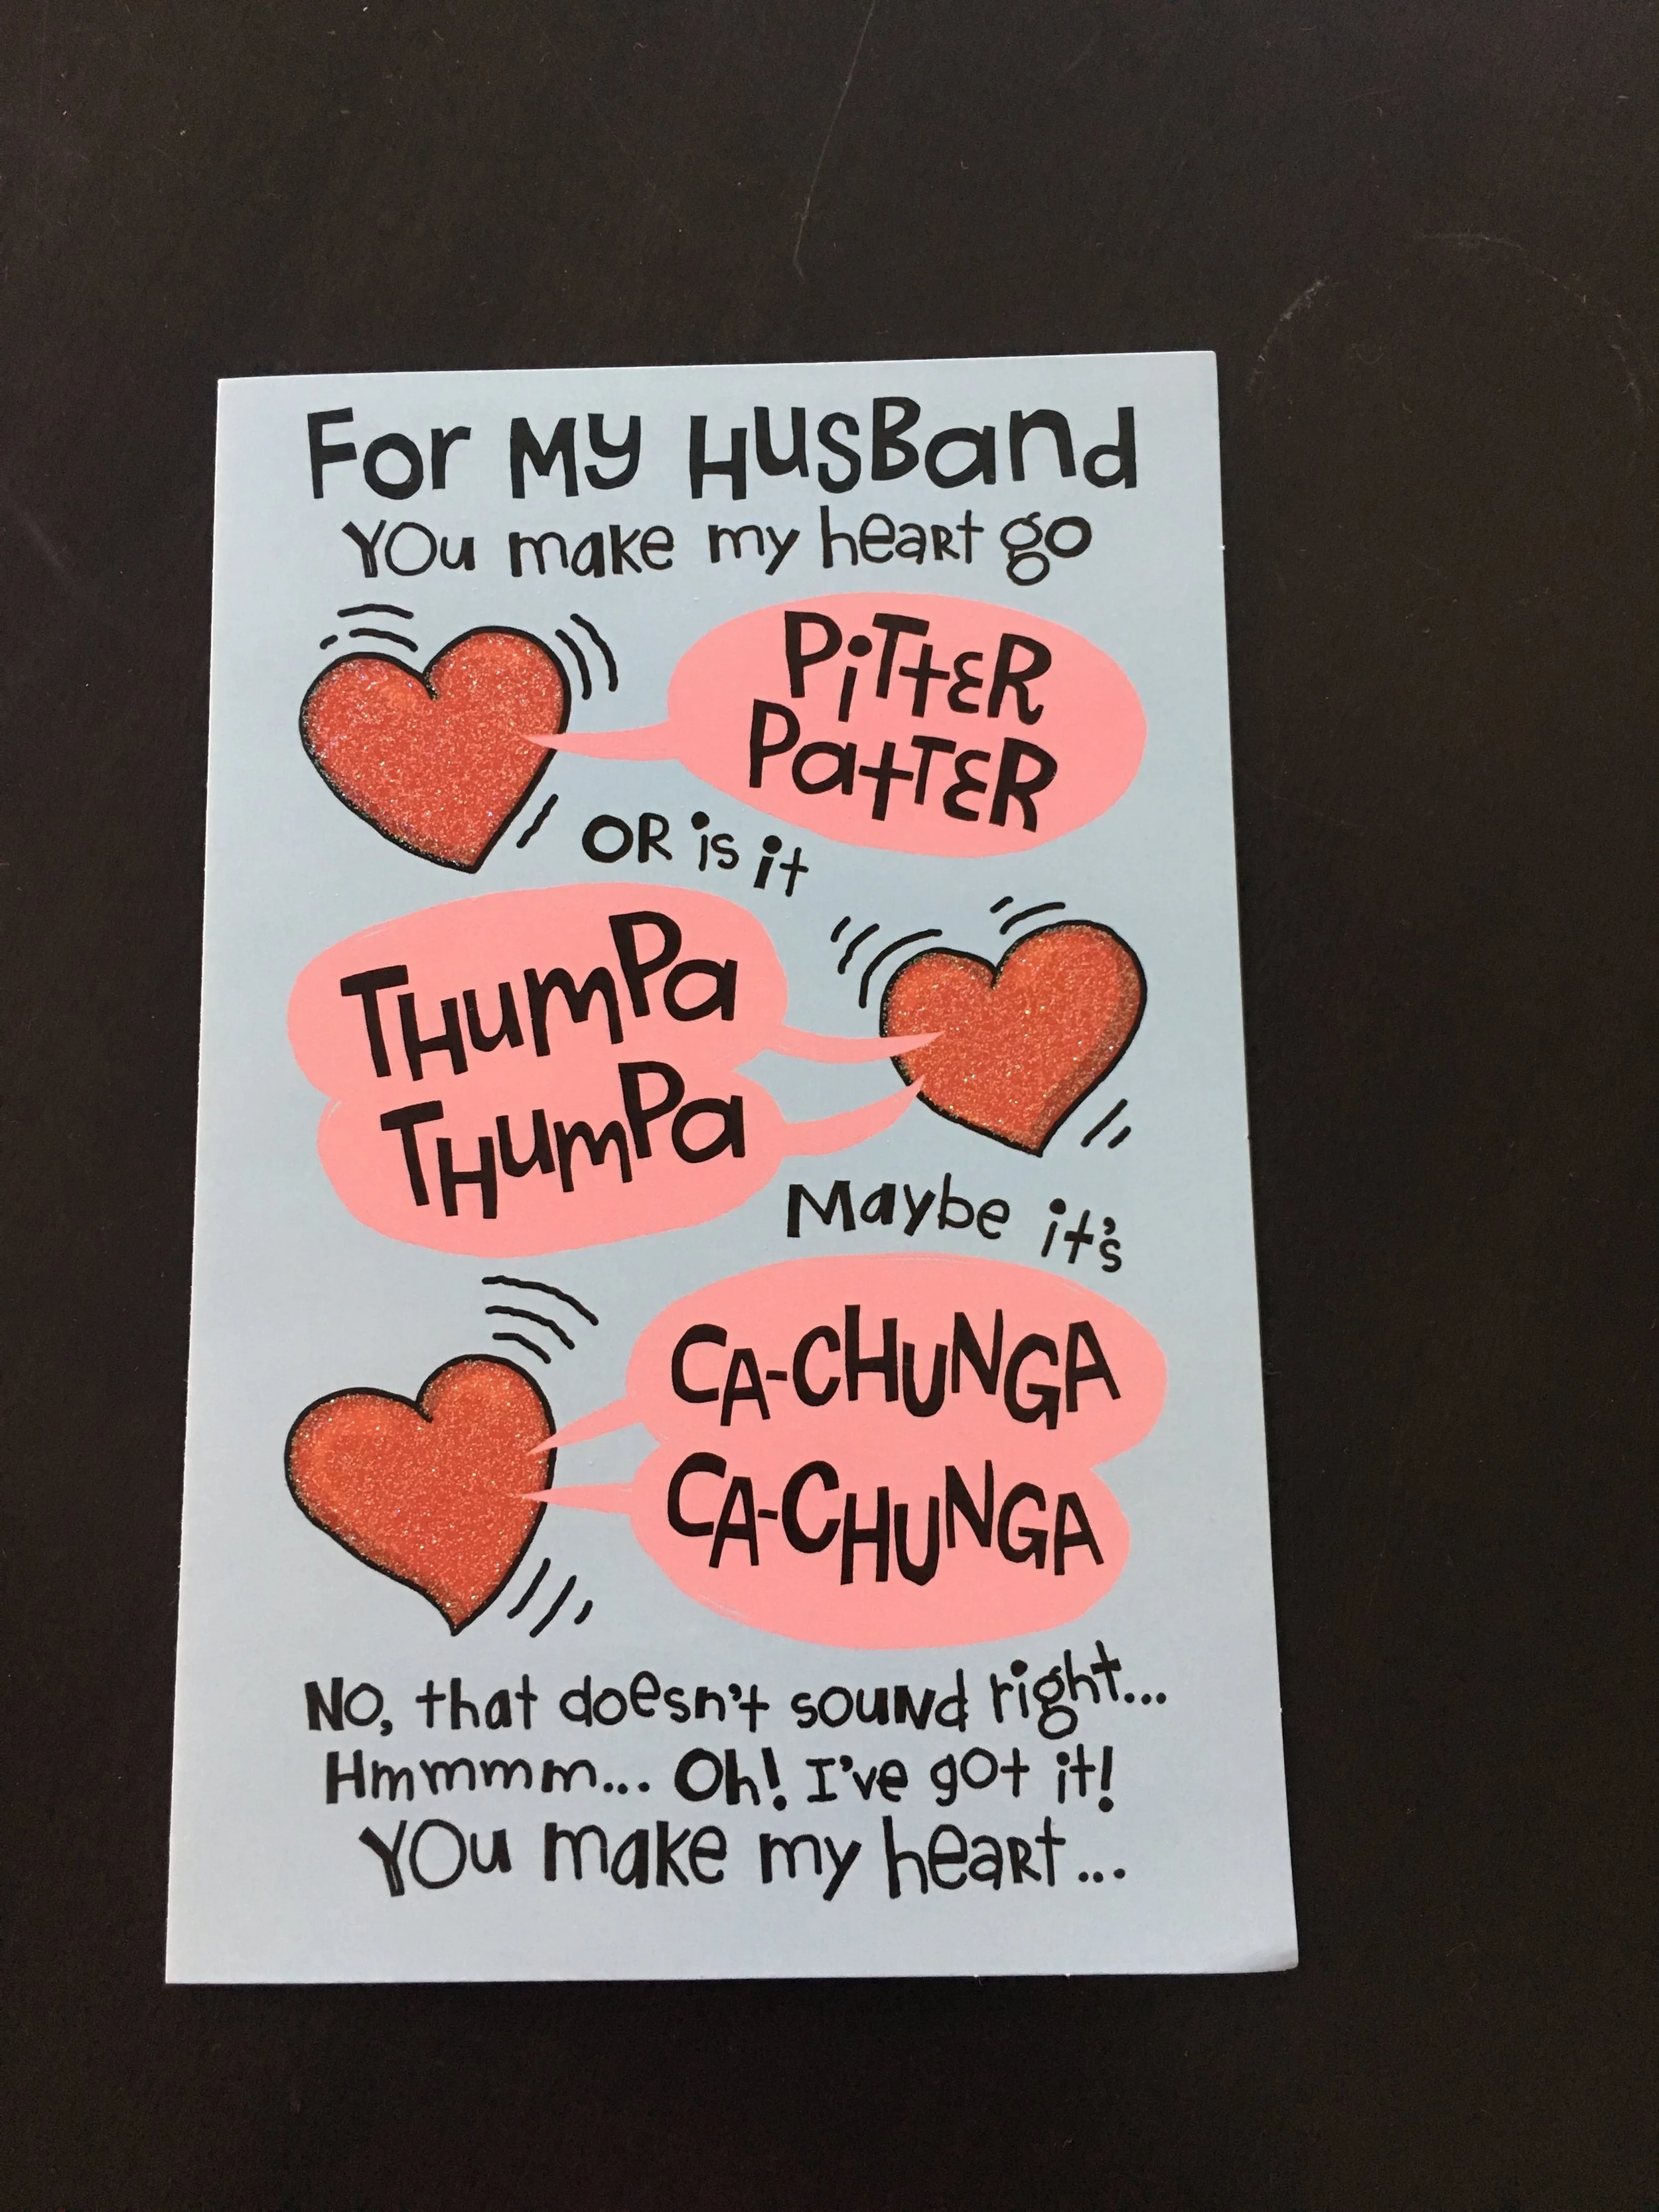 For My Husband
You make my heart go
Pitter
Patter
or is it
Thumpa
Thumpa
Maybe it's
CA-CHUNGA
CA-CHUNGA
No, that doesn't sound right...
Hmmmm... Oh! I've got it!
You make my heart...